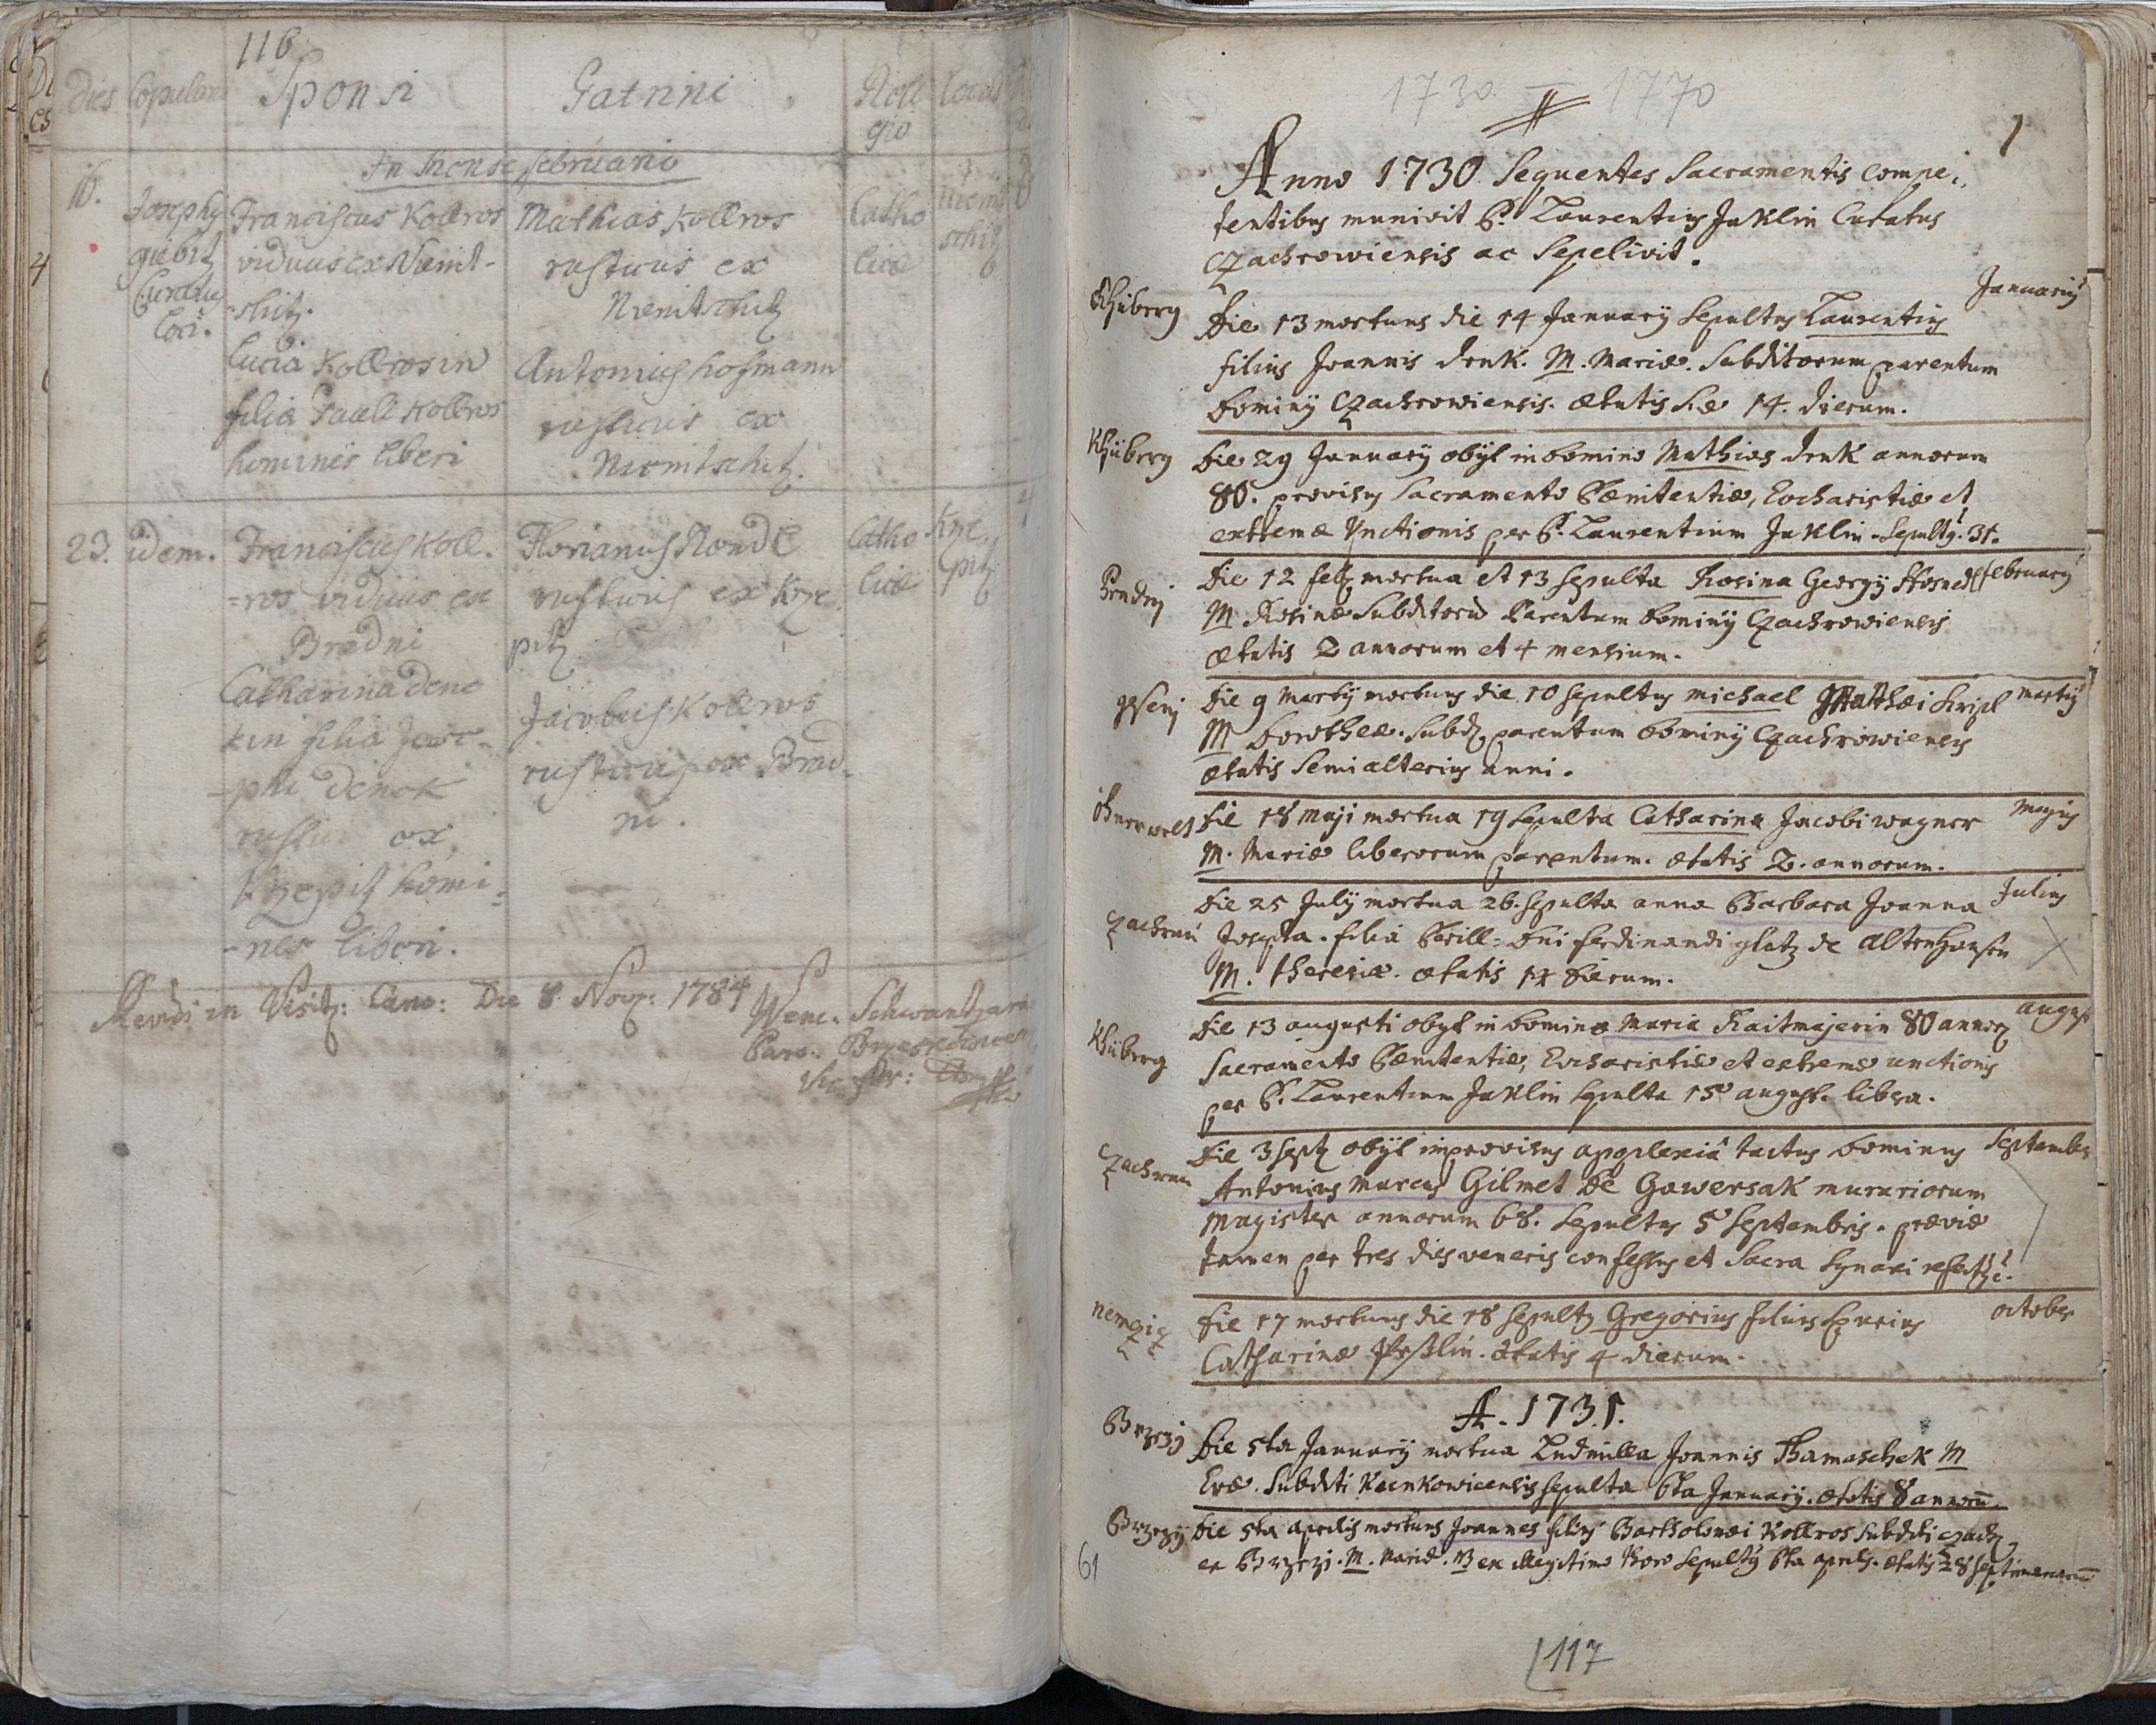 116
Dies Copulans Sponsi Patrini Reli Locus
gio
In Mense februario
16.
Josephus
Curatus
Loci.
Franciscus Kollros
viduus ex Niemt-
-shitz.
Lucia Kollrosin
filia Pauli Kollros
hominis liberi
Mathias Kollros
rusticus ex
Niemtschitz
Antonius Hofmann
rusticus ex
Niemtschitz.
Catho
licae
Niemt
schitz
23. idem.
Franciscus Koll-
=ros viduus ex
Bradni
Catharina Dene
kin filia Jose-
-phi Denck
rustici ex
Krzepitz homi-
-nes liberi.
Florianus
rusticus ex Krze
pitz
Jacobus Kollros
rusticus ex Brad-
ni.
Catho
licae
Krze
pitz
in Visit: Can: Die 8 Nov: 1784 Wenc. Schwantzara
1730. – 1770
1
Anno 1730 Sequentes Sacramentis compe-
tentibus munivit P. Laurentius Jaklin Curatus
Czachrowiensis ac Sepelivit.
Januarius
Khüberg
Die 13 mortuus die 14 January Sepultus Laurentius
filius Joannis Denk. M. Mariae. Subditorum parentum
Dominy Czachrowiensis. aetatis suae 14. dierum.
Khüberg
Die 29 January obyt in Domino Mathias Denk annorum
80. provisus Sacramento Paenitentiae, Eucharistiae et
extremae Unctionis per P. Laurentium Jaklin. Sepultus 31.
Bradnj
Die 12 feb mortua et 13 sepulta Rosina Georgy February
M Rosinae Subditorum Parentum Dominy Czachrowiensis
aetatis 2 annorum et 4 mensium.
Die 9 Marty mortuus die 10 sepultus Michael Matthaei Marty
M Dorotheae. Subd. parentum Dominy Czachrowiensis
aetatis Semialterius anni.
Die 18 Maji mortua 19 sepulta Catharina Jacobi Wagner Majus
M. Mariae liberorum parentum. aetatis 2. annorum.
Czachrau
Die 25 July mortua 26. sepulta Anna Barbara Joanna Julius
Josepha. filia Perill: Dni Ferdinandi Glatz de Altenhofen
M. Theresiae. aetatis 14 Dierum.
Khüberg
Die 13 Augusti obyt in Domino Maria Raitmajerin 80 annor August
Sacramento Paenitentiae, Eucharistiae et extremae unctionis
per P. Laurentium Jaklin sepulta 15 August. libera.
Czachrau
Die 3 Sept obyt improvisus apoplexiâ tactus Dominus September
Antonius Marcus Gilmet De Gawersak murariorum
Magister annorum 68. Sepultus 5 Septembris. praevie
tamen per tres dies veneris confessus et Sacra Synaxi refectus.
Nemcziz
Die 17 mortuus die 18 sepult Gregorius filius spurius October
Catharinae aetatis 4 dierum.
A. 1731.
Brzezj
Die 5ta January mortua Ludmilla Joannis Thamaschek M
Evae. Subditi Kunkowicensis sepulta 6ta January. aetatis 8 annorum.
Brzezj
Die 5ta aprilis mortuus Joannes filius Bartholomaei Kollros subditi Czach
ex Brzezj. M. Mariae. ex illegitimo thoro sepultus 6ta aprilis. aetatis 28 septimanarum
61
117